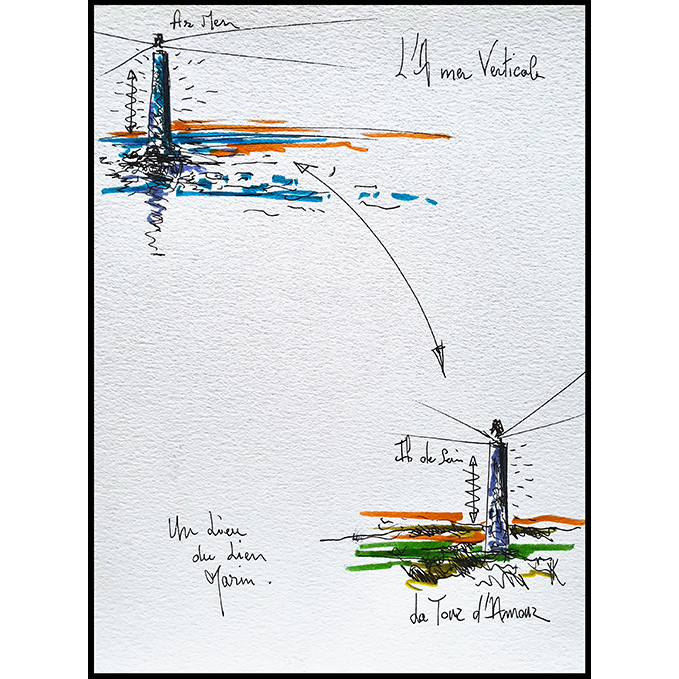 Ar Men
L'A mer Verticale
Île de Sein
Un Lieu
du Lien
Marin.
La Tour d'Amour